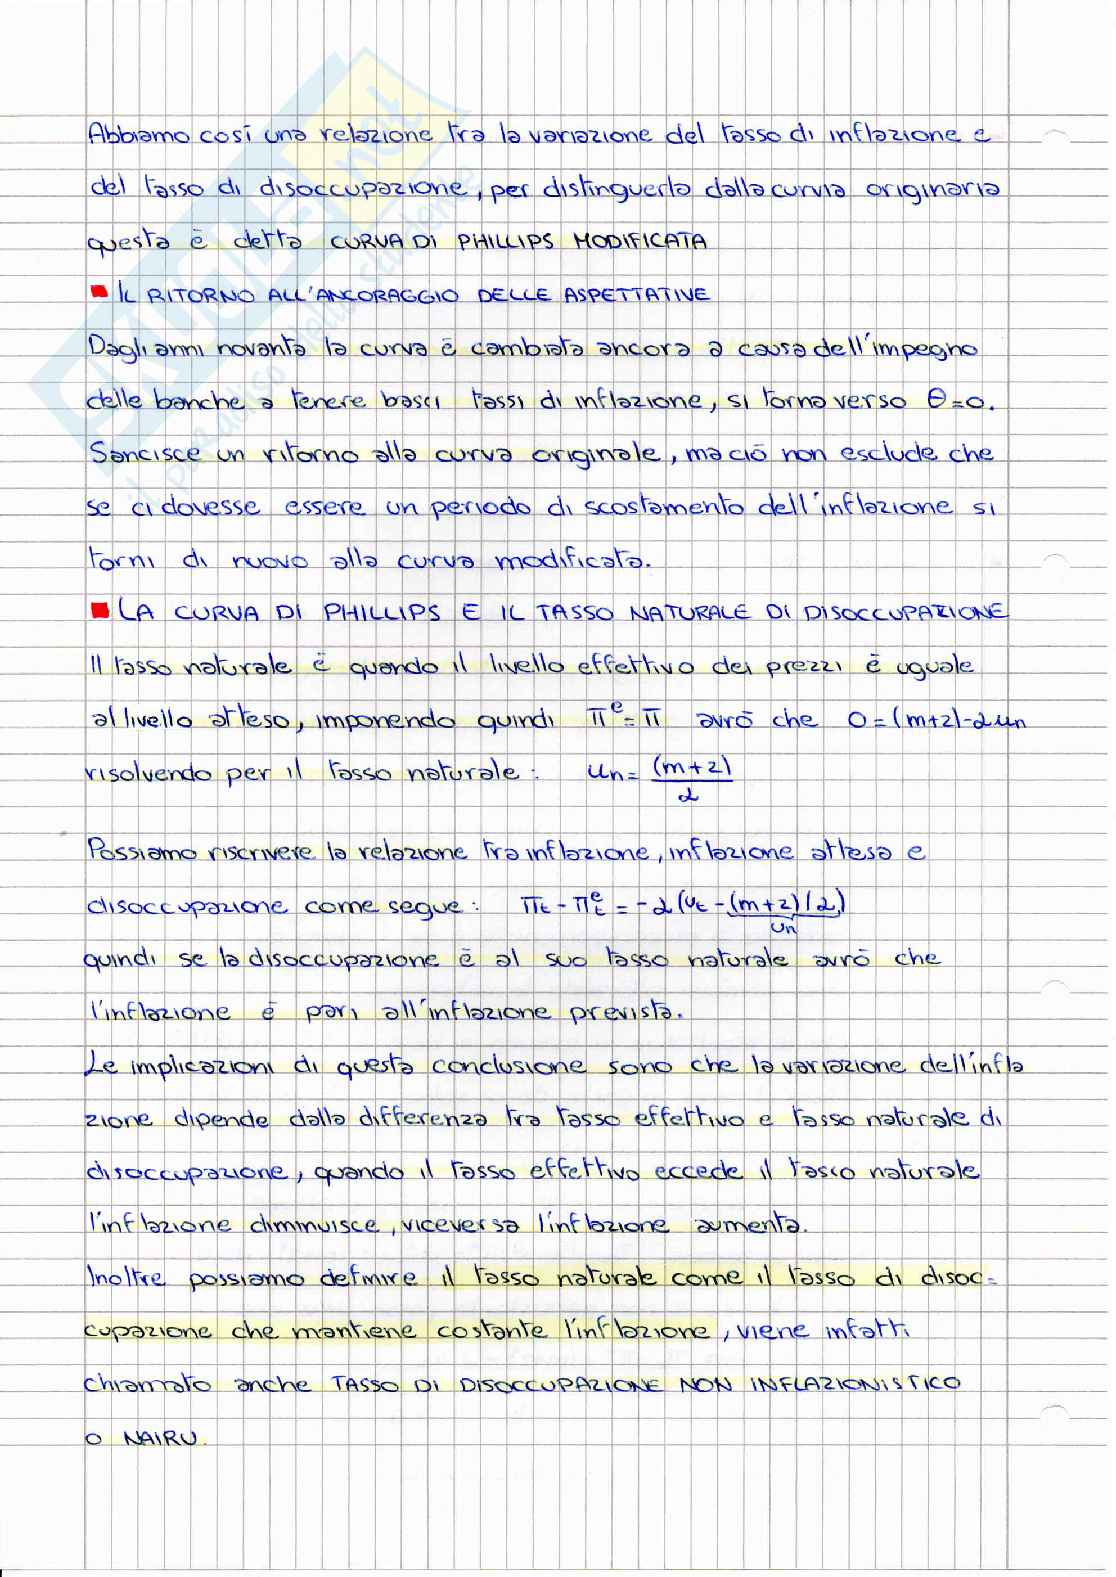 Abbiamo così una relazione tra la variazione del tasso di inflazione e
del tasso di disoccupazione, per distinguerla dalla curvia originaria
questa è detta CURVA DI PHILLIPS MODIFICATA
IL RITORNO ALL'ANCORAGGIO DELLE ASPETTATIVE
Dagli anni novanta la curva è cambiata ancora a causa dell'impegno
delle banche a tenere bassi tassi di inflazione, si torna verso θ=0.
Sancisce un ritorno alla curva originale, ma ciò non esclude che
se ci dovesse essere un periodo di scostamento dell'inflazione si
torni di nuovo alla curva modificata.
LA CURVA DI PHILLIPS E IL TASSO NATURALE DI DISOCCUPAZIONE
Il tasso naturale è quando il livello effettivo dei prezzi è uguale
al livello atteso, imponendo quindi πᵉ=π avrò che 0=(m+z)-αun
risolvendo per il tasso naturale: un= (m+z)/α
Possiamo riscrivere la relazione tra inflazione, inflazione attesa e
disoccupazione come segue: πt-πᵉt=-α(ut-(m+z)/α)
un
quindi se la disoccupazione è al suo tasso naturale avrò che
l'inflazione è pari all'inflazione prevista.
Le implicazioni di questa conclusione sono che la variazione dell'infla
zione dipende dalla differenza tra tasso effettivo e tasso naturale di
disoccupazione, quando il tasso effettivo eccede il tasso naturale
l'inflazione diminuisce, viceversa l'inflazione aumenta.
Inoltre possiamo definire il tasso naturale come il tasso di disoc-
cupazione che mantiene costante l'inflazione, viene infatti
chiamato anche TASSO DI DISOCCUPAZIONE NON INFLAZIONISTICO
O NAIRU.